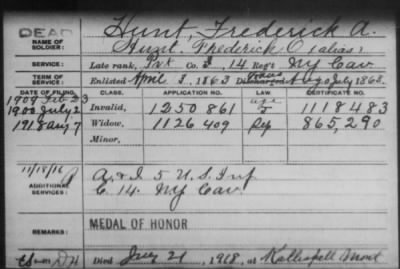 DEAD
NAME OF SOLDIER: Hunt, Frederick A.
Hunt, Frederick O (alias)
SERVICE: Late rank, Co. 14 Reg't NY Cav
TERM OF SERVICE: Enlisted April 1863 Discharged July 1868.
DATE OF FILING. CLASS. APPLICATION NO. LAW CERTIFICATE NO.
1909 Feb 23
1900 July 2 Invalid, 1250 861 1118483
1918 Aug 7 Widow, 1126 409 865,290
Minor,
11/18/16
ADDITIONAL SERVICES: A & I 5 U.S. Inf
C. 14. NY Cav.
REMARKS: MEDAL OF HONOR
Died July 21, 1918, at Kallispell Mont